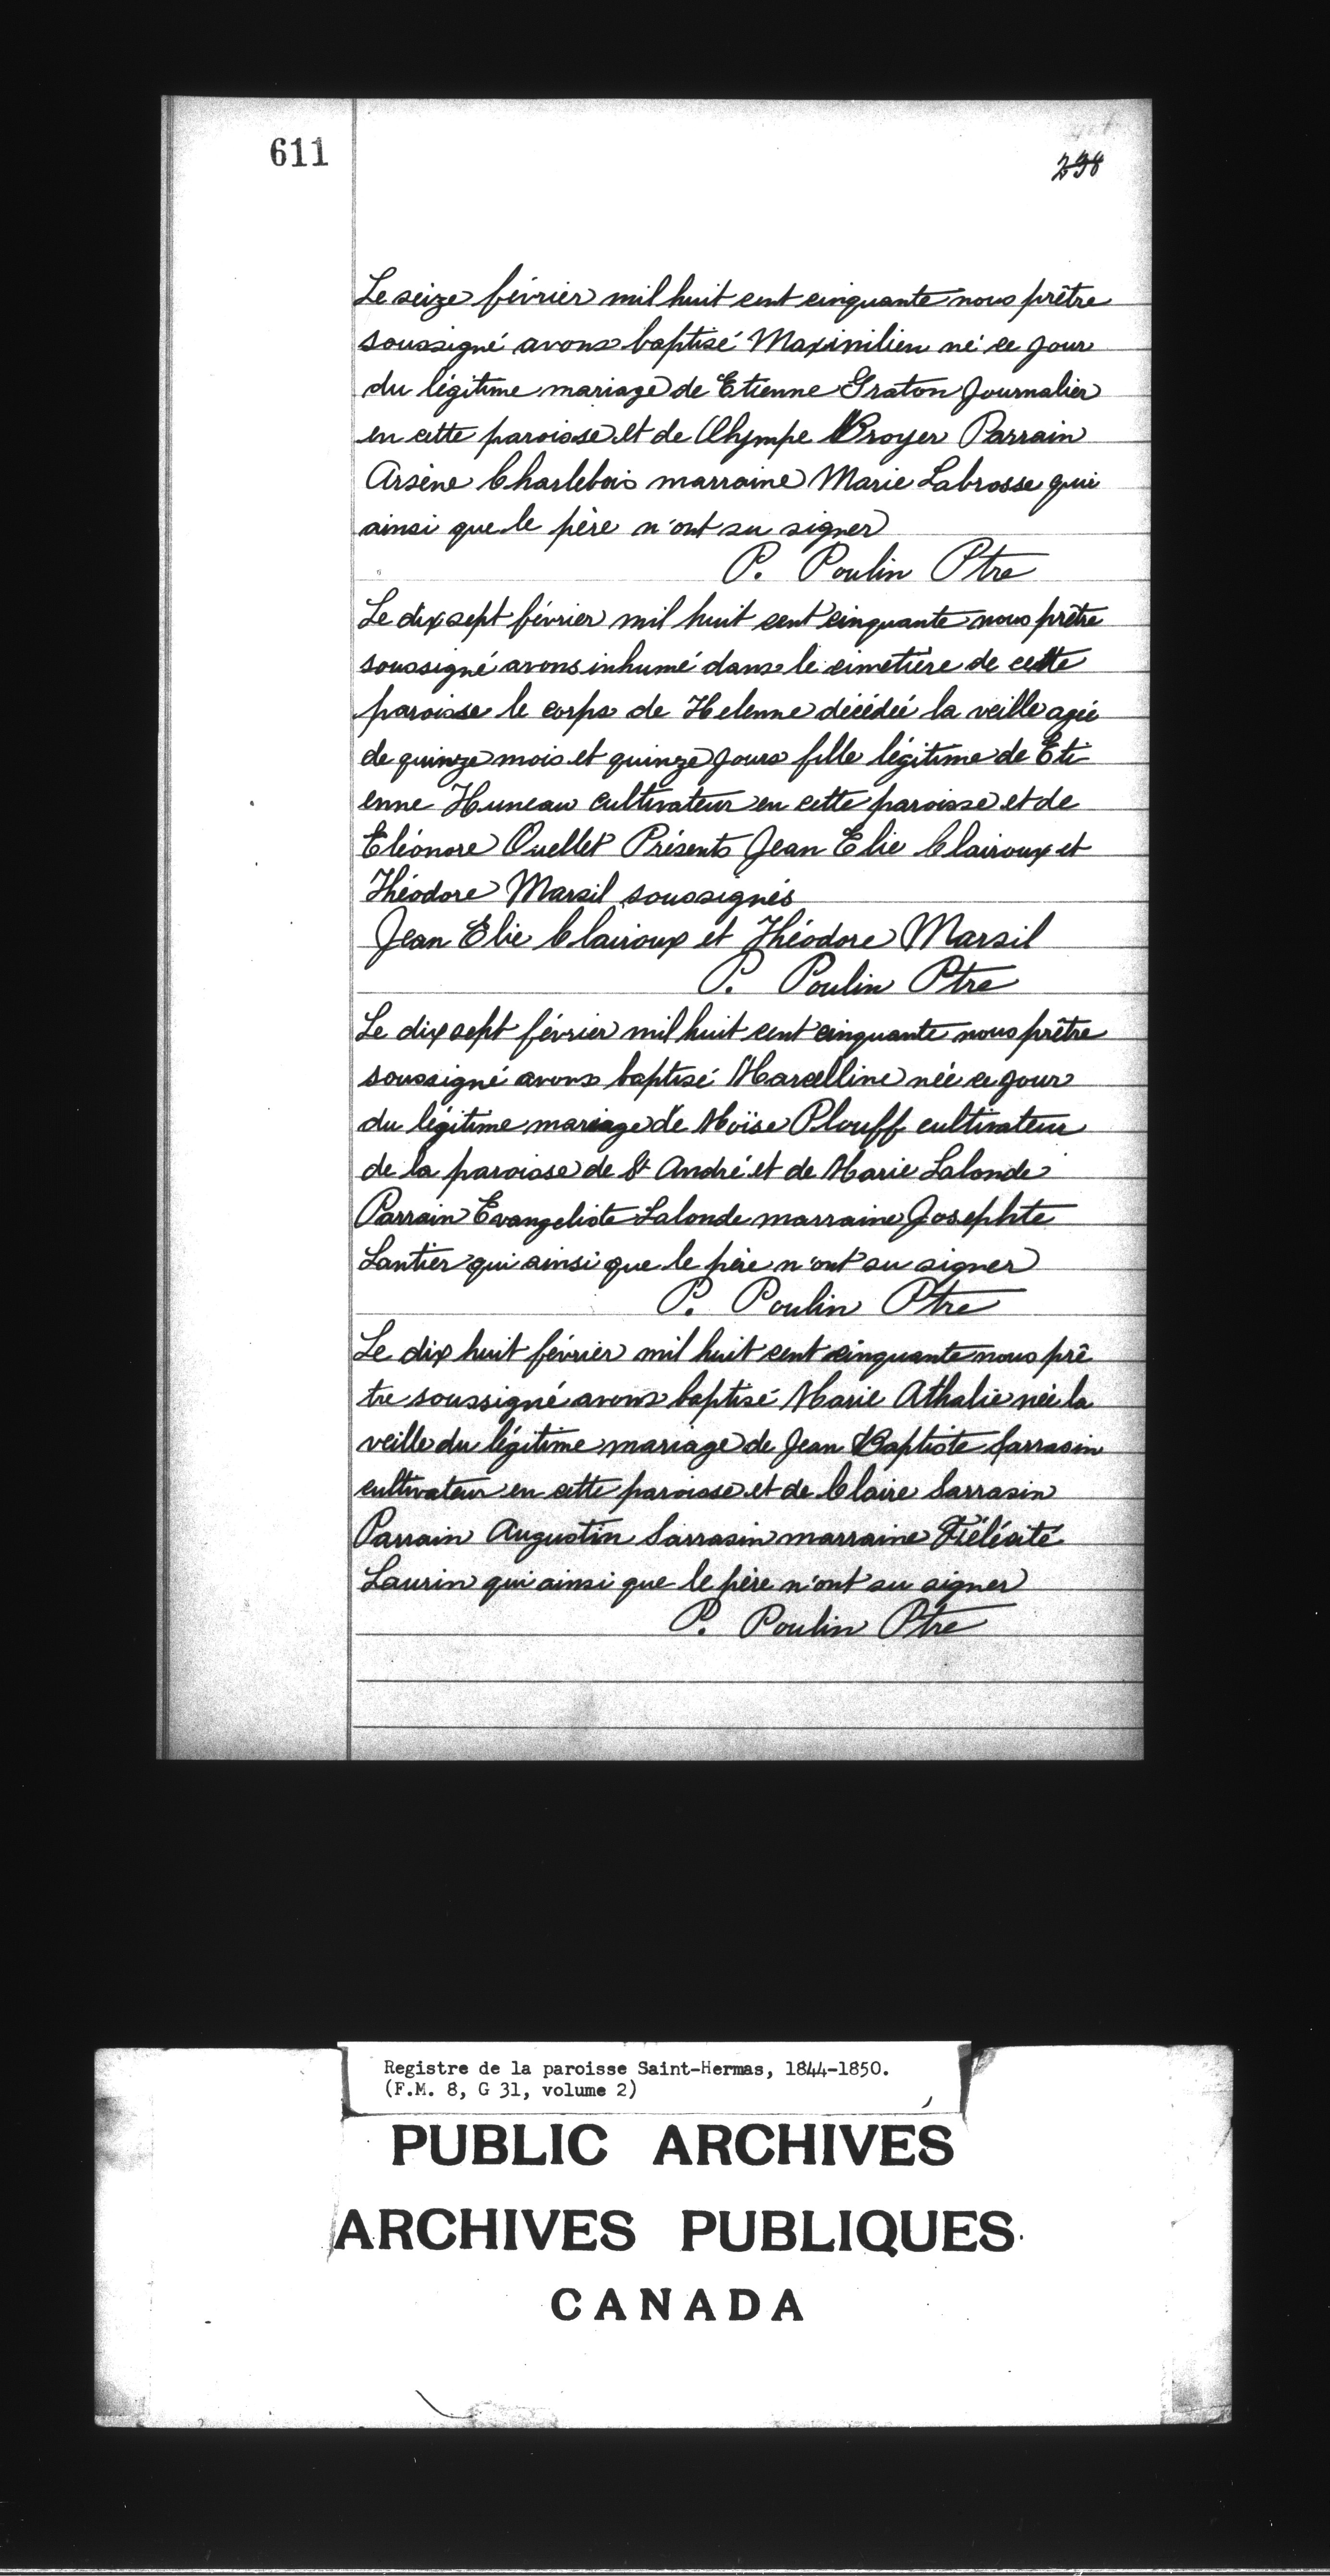 611
298
Le seize février mil huit cent cinquante nous prêtre
soussigné avons baptisé Maximilien né ce jour
du légitime mariage de Etienne Graton Journalier
en cette paroisse et de Olympe Broyer Parrain
Arsène Charlebois marraine Marie Labrosse qui
ainsi que le père n'ont su signer
P. Poulin Ptre
Le dix sept février mil huit cent cinquante nous prêtre
soussigné avons inhumé dans le cimetière de cette
paroisse le corps de Helenne décédée la veille agée
de quinze mois et quinze jours fille légitime de Eti
enne Huneau cultivateur en cette paroisse et de
Eléonore Ouellet Présents Jean Elie Clairoux et
Théodore Marsil soussignés
Jean Elie Clairoux et Théodore Marsil
P. Poulin Ptre
Le dix sept février mil huit cent cinquante nous prêtre
soussigné avons baptisé Marcelline née ce jour
du légitime mariage de Moïse Plouff cultivateur
de la paroisse de St André et de Marie Lalonde
Parrain Evangeliste Lalonde marraine Josephte
Lantier qui ainsi que le père n'ont su signer
P. Poulin Ptre
Le dix huit février mil huit cent cinquante nous prê
tre soussigné avons baptisé Marie Athalie née la
veille du légitime mariage de Jean Baptiste Sarrasin
cultivateur en cette paroisse et de Claire Sarrasin
Parrain Augustin Sarrasin marraine Félécité
Laurin qui ainsi que le père n'ont su signer
P. Poulin Ptre
Registre de la paroisse Saint-Hermas, 1844-1850.
(F.M. 8, G 31, volume 2)
PUBLIC ARCHIVES
ARCHIVES PUBLIQUES
CANADA